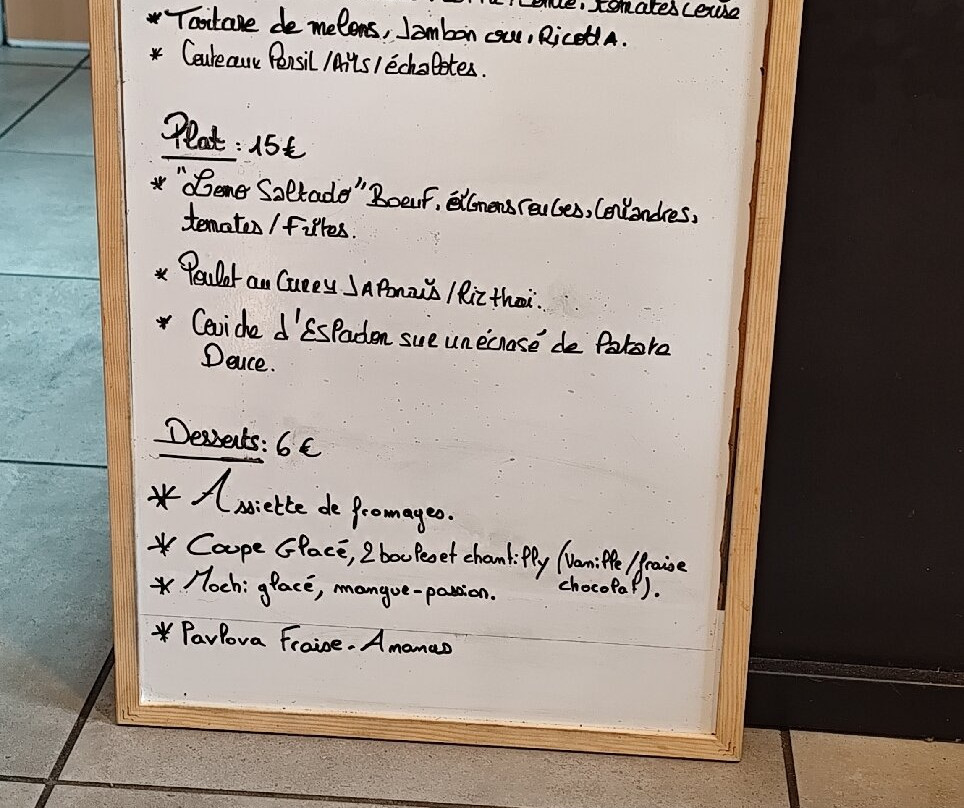 tomates cerise
* Tartare de melons, Jambon cru, Ricotta.
* Couteaux Persil / Ails / échalotes.
Plat : 15€
* "Lomo Saltado" Boeuf, oignons rouges, Coriandres,
tomates / Frites.
* Poulet au Curry Japonais / Riz thaï.
* Ceviche d'Espadon sur un écrasé de Patate
Douce.
Desserts : 6 €
* Assiette de fromages.
* Coupe Glacé, 2 boules et chantilly (Vanille / fraise
chocolat).
* Mochi glacé, mangue-passion.
* Pavlova Fraise - Ananas